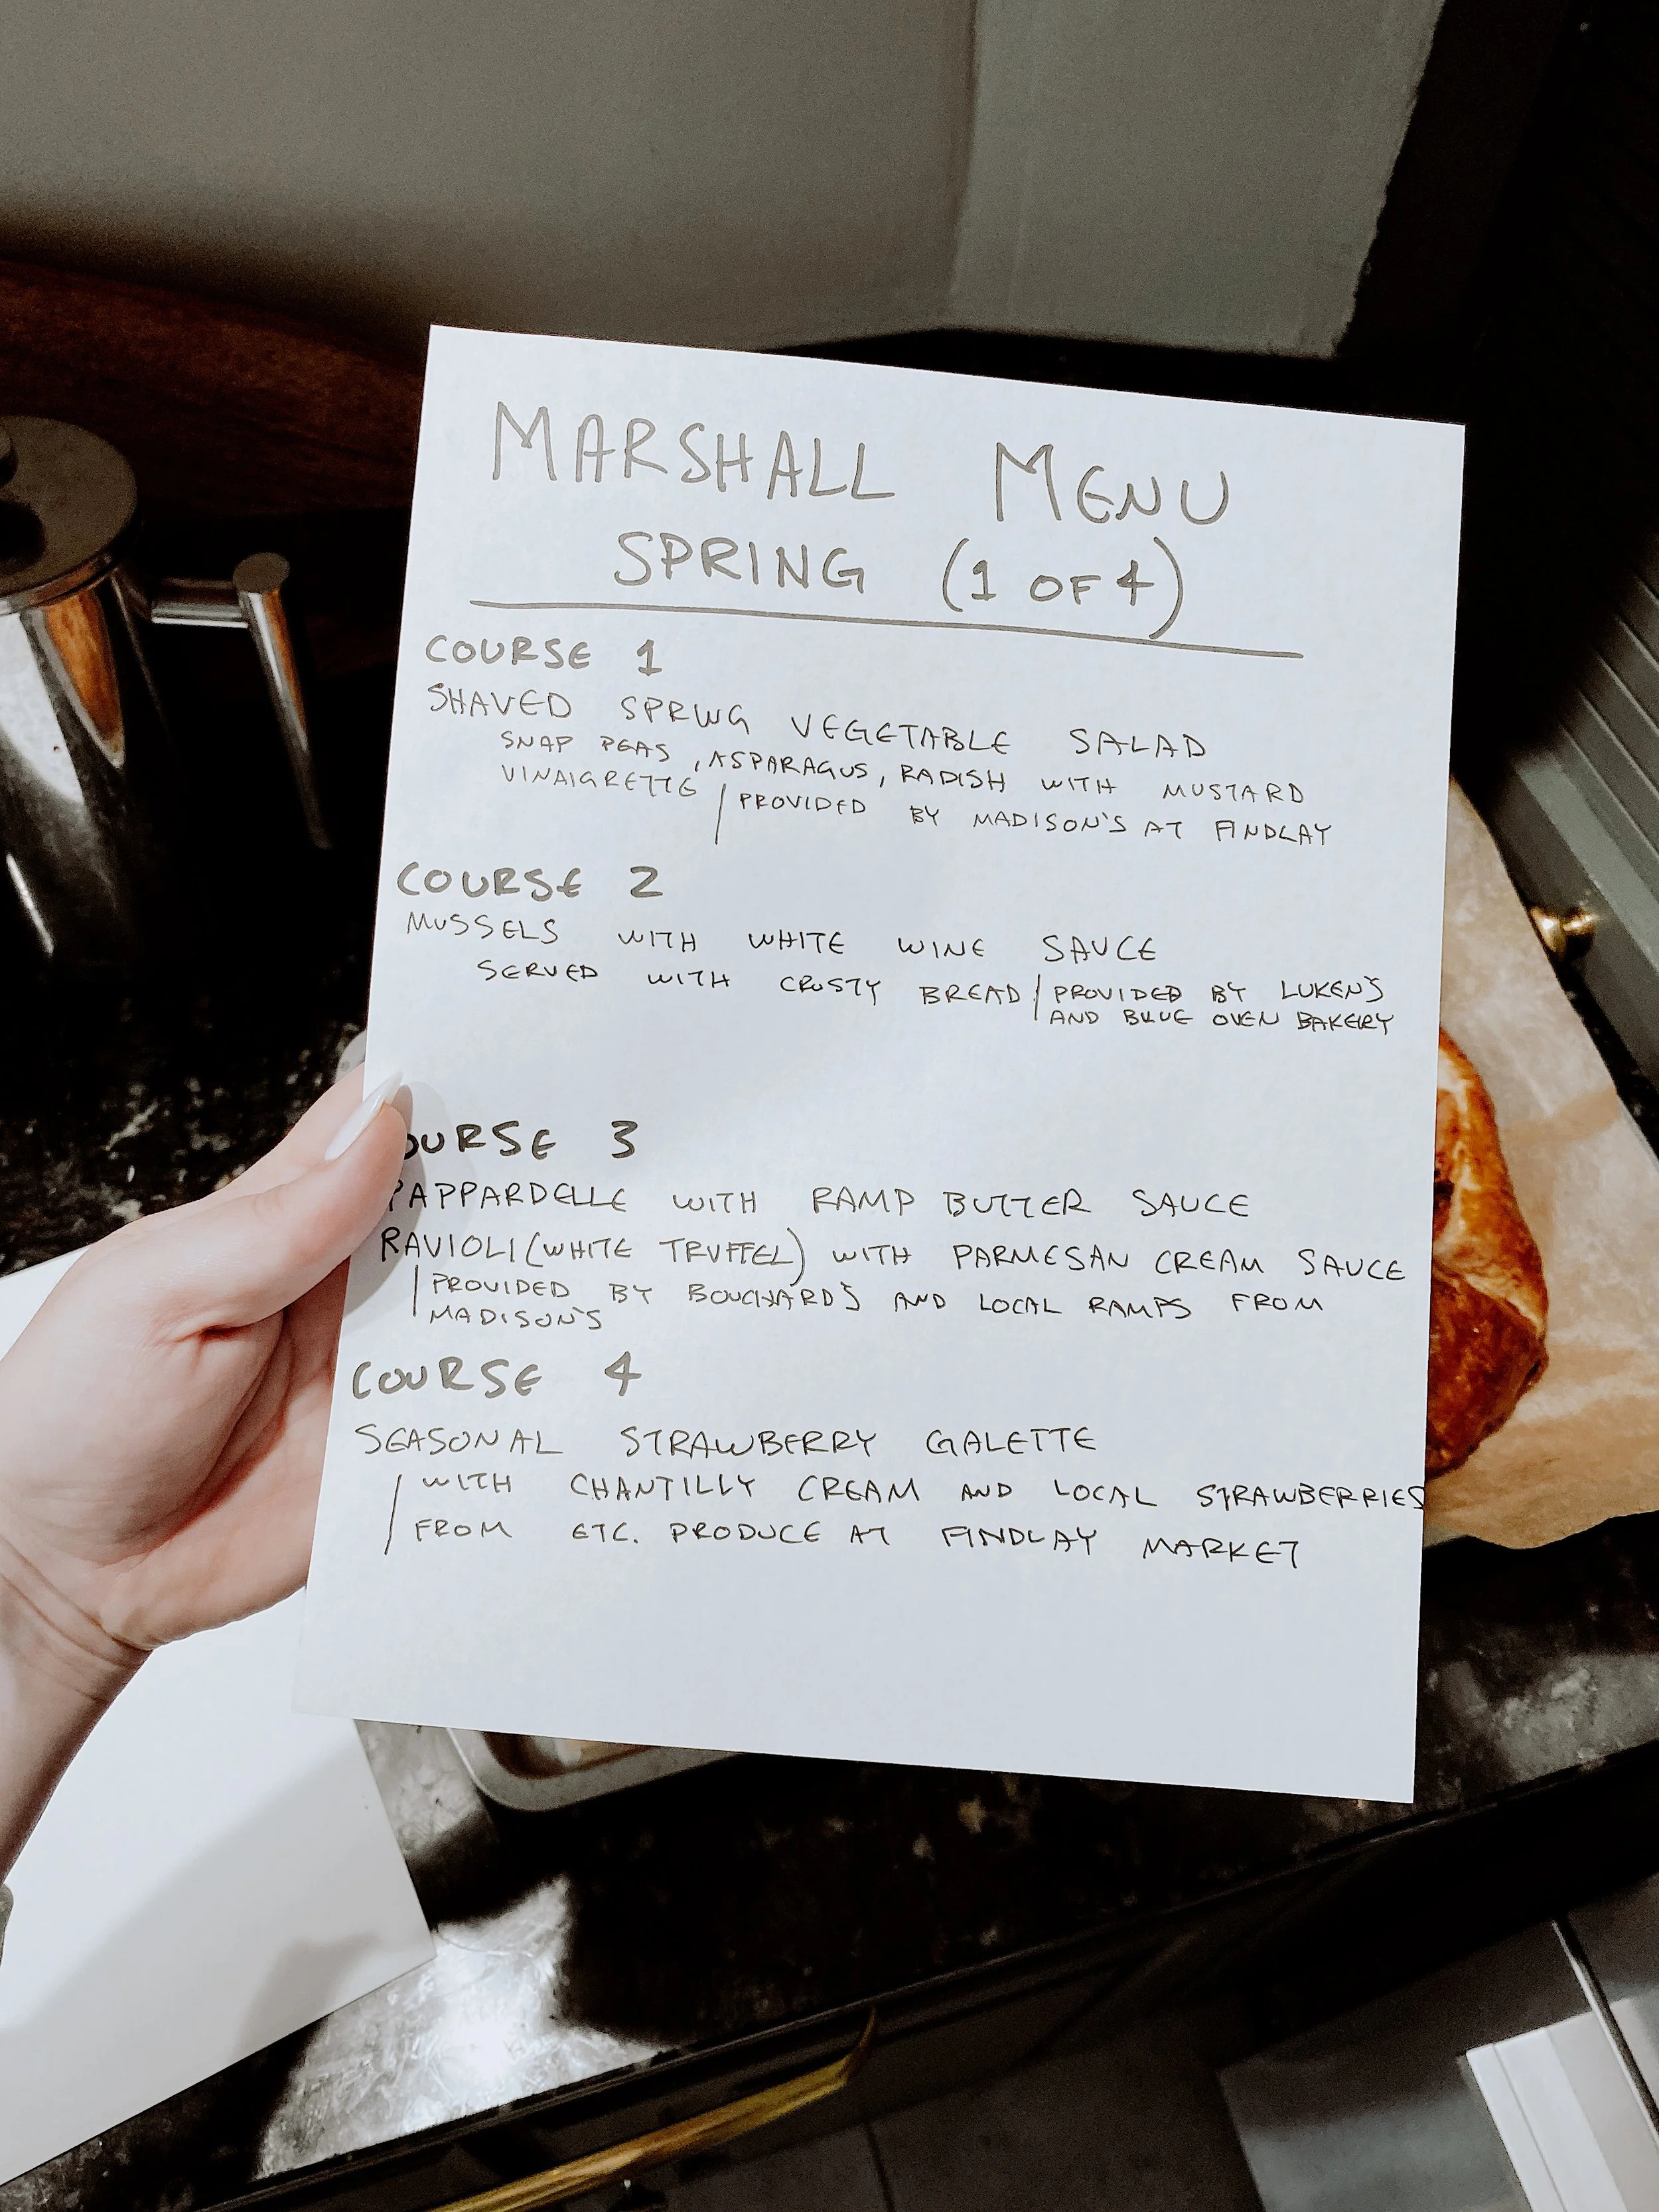 MARSHALL MENU
SPRING (1 OF 4)
COURSE 1
SHAVED SPRING VEGETABLE SALAD
SNAP PEAS, ASPARAGUS, RADISH WITH MUSTARD
VINAIGRETTE | PROVIDED BY MADISON'S AT FINDLAY
COURSE 2
MUSSELS WITH WHITE WINE SAUCE
SERVED WITH CRUSTY BREAD | PROVIDED BY LUKEN'S
AND BLUE OVEN BAKERY
OURSE 3
PAPPARDELLE WITH RAMP BUTTER SAUCE
RAVIOLI (WHITE TRUFFEL) WITH PARMESAN CREAM SAUCE
| PROVIDED BY BOUCHARD'S AND LOCAL RAMPS FROM
MADISON'S
COURSE 4
SEASONAL STRAWBERRY GALETTE
| WITH CHANTILLY CREAM AND LOCAL STRAWBERRIES
FROM ETC. PRODUCE AT FINDLAY MARKET